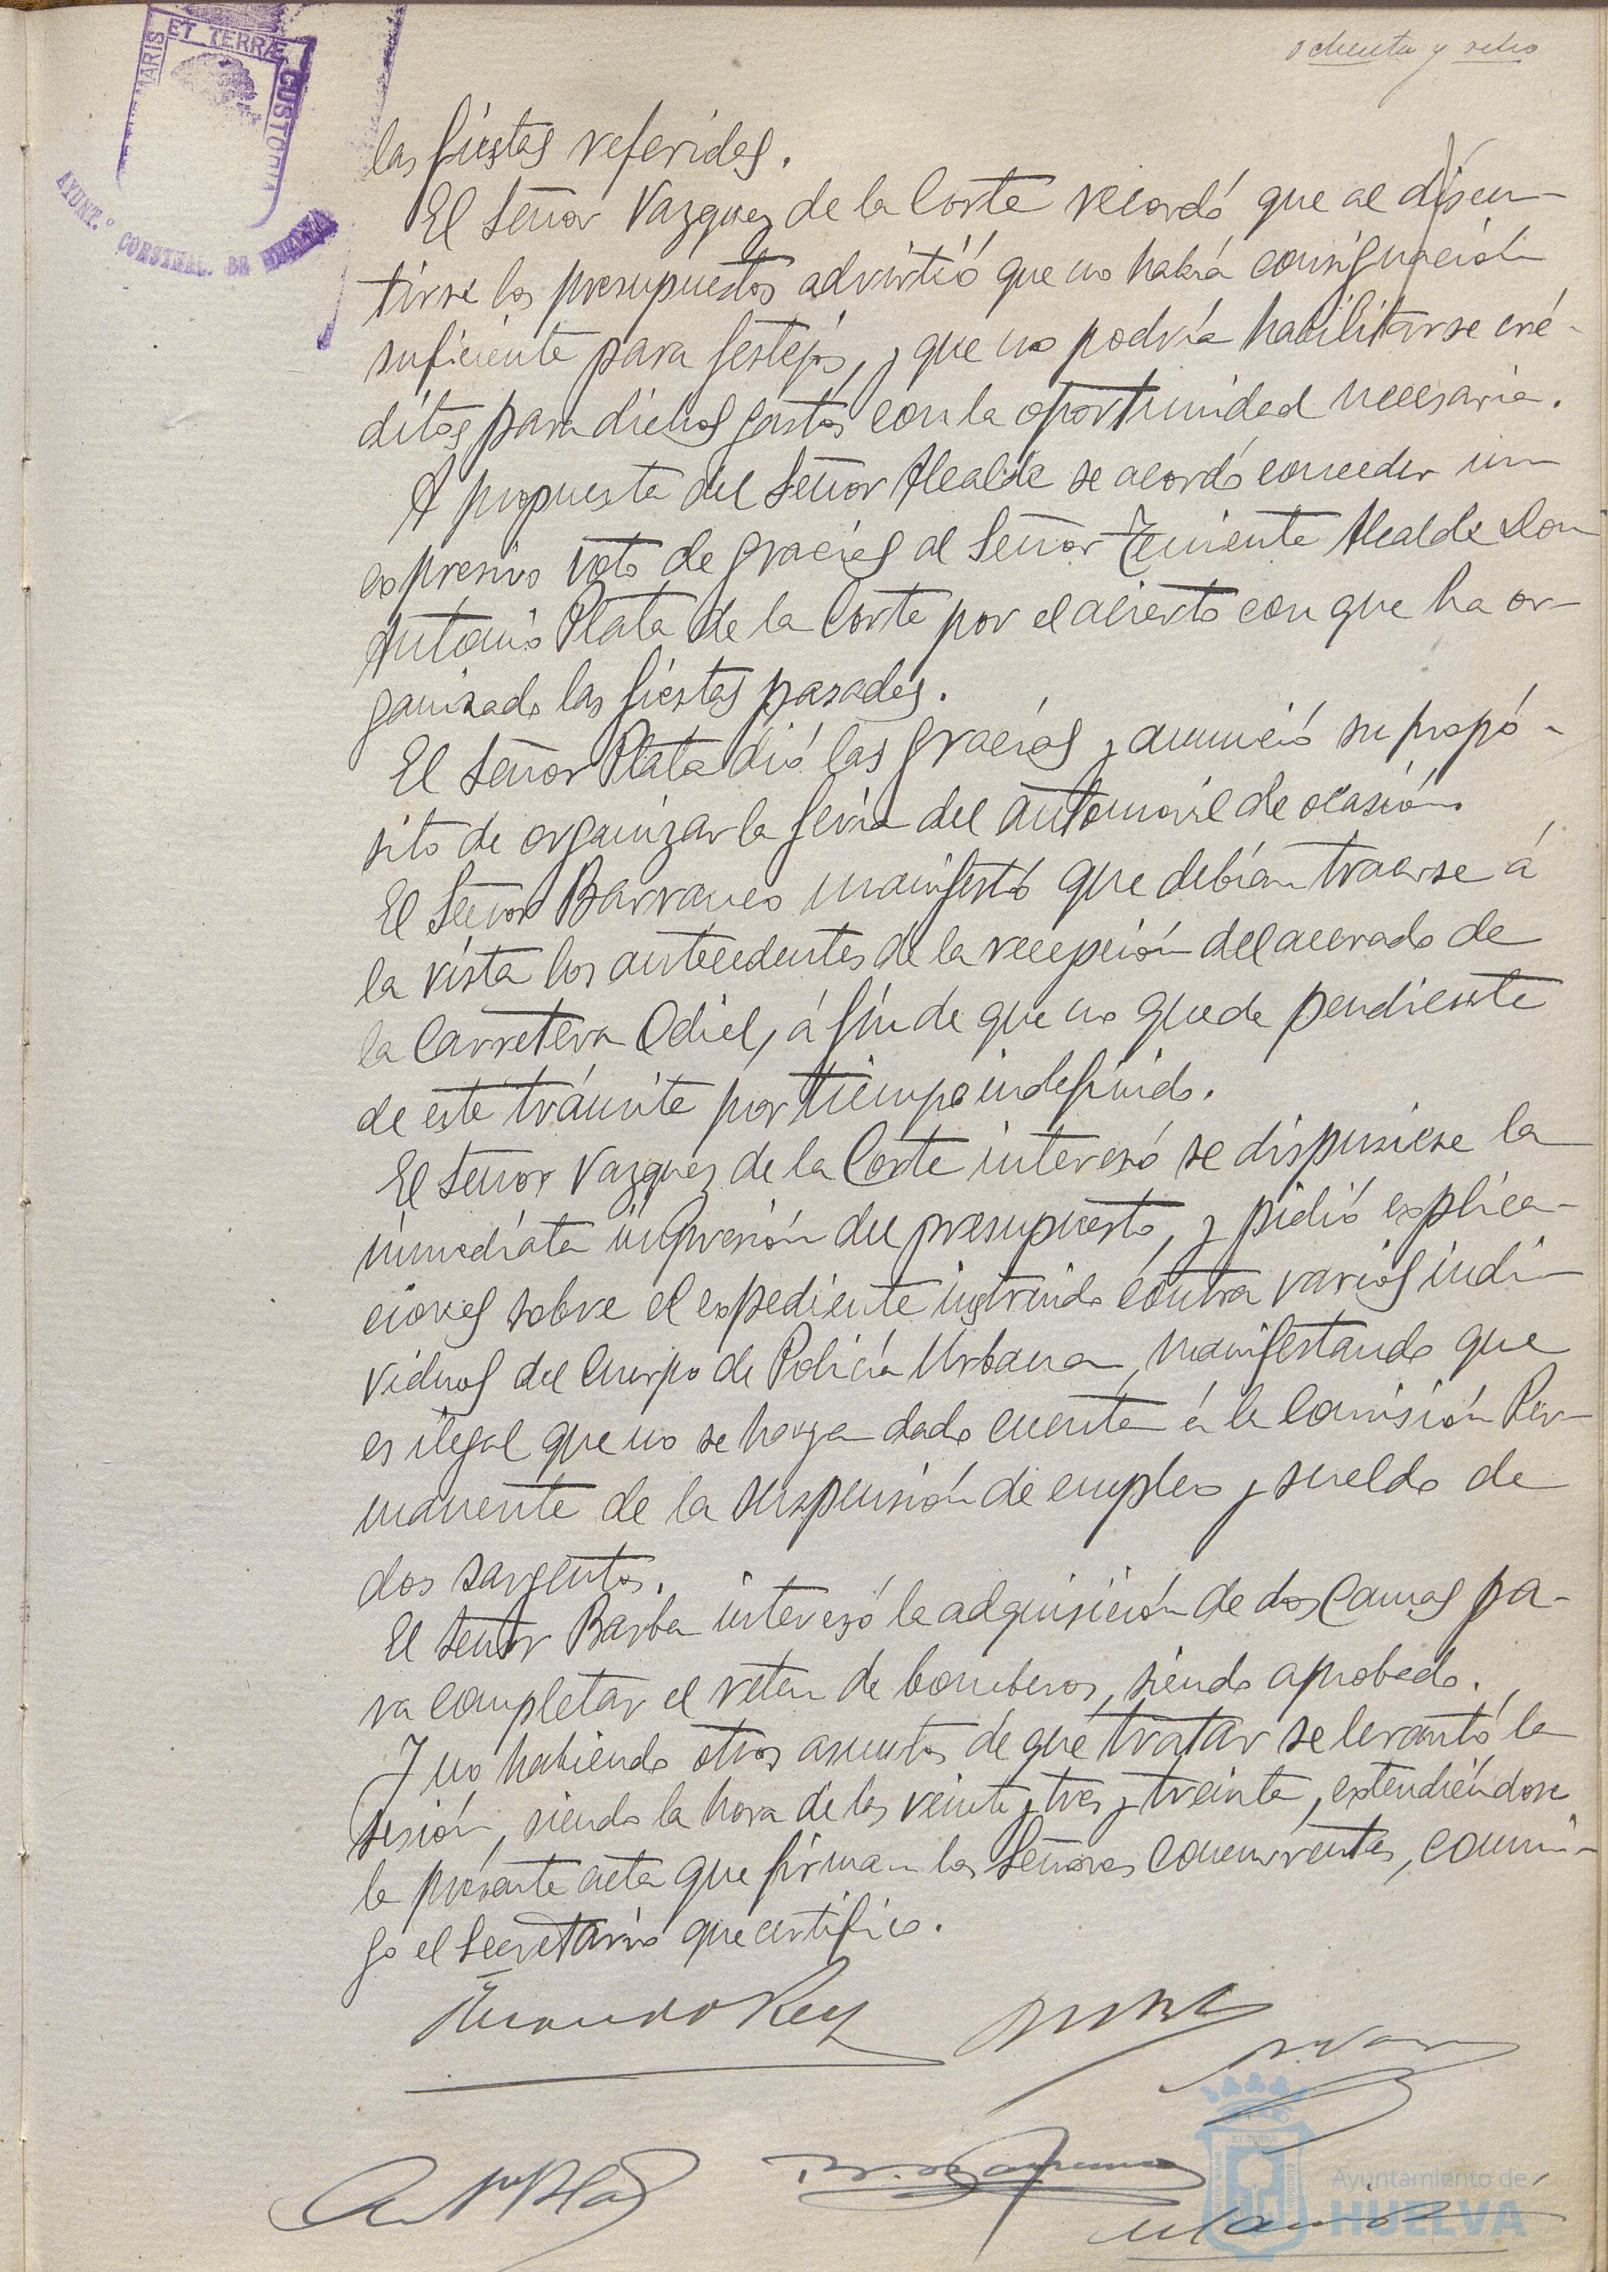 ochenta y ocho
MARIS ET TERRÆ CUSTODIA
AYUNT.º CONSTNAL. DE HUELVA
las fiestas referidas.
El Señor Vazquez de la Corte recordó que al discu-
tirse los presupuestos advirtió que no habrá consignación
suficiente para festejos, y que no podría habilitarse cré-
ditos para dichos gastos con la oportunidad necesaria.
A propuesta del Señor Alcalde se acordó conceder un
expresivo voto de gracias al Señor Teniente Alcalde Don
Antonio Plata de la Corte por el acierto con que ha or-
ganizado las fiestas pasadas.
El Señor Plata dió las gracias y anunció su propó-
sito de organizar la feria del automovil de ocasión.
El Señor Barranco manifestó que debían traerse á
la vista los antecedentes de la recepción del acerado de
la Carretera Odiel, á fin de que no quede pendiente
de este trámite por tiempo indefinido.
El Señor Vazquez de la Corte interesó se dispusiese la
inmediata impresión del presupuesto, y pidió explica-
ciones sobre el expediente instruido contra varios indi-
viduos del Cuerpo de Policía Urbana, manifestando que
es ilegal que no se haya dado cuenta á la Comisión Per-
manente de la suspensión de empleo y sueldo de
dos sargentos.
El Señor Barba interesó la adquisición de dos camas pa-
ra completar el reten de bomberos, siendo aprobado.
Y no habiendo otros asuntos de qué tratar se levantó la
sesión, siendo la hora de las veinte y tres y treinta, extendiéndose
la presente acta que firman los Señores concurrentes, conmi-
go el Secretario que certifico.
Ayuntamiento de
HUELVA